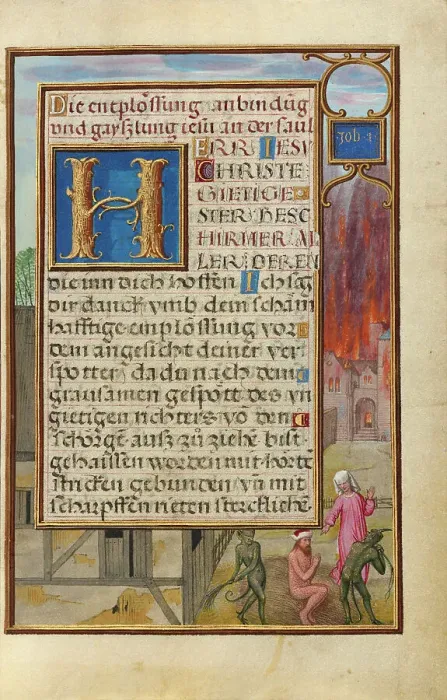 Die entplössung anbindūg
vnd gayszlung iesu an der saul
HERR IESV
CHRISTE
GIETIGE
STER BESC
HIRMER AL
LER DEREN
die inn dich hoffen Ich sag
dir danck vmb dein scham
hafftige emplössung vor
dem angesicht deiner ver
spotter da du nach deinē
grausamen gespött des vn
gietigen richters vō den
schörgē ausz zů ziehē bist
gehaissen worden mit hörtē
stricken gebunden vn̄ mit
scharpffen rieten
Job 2